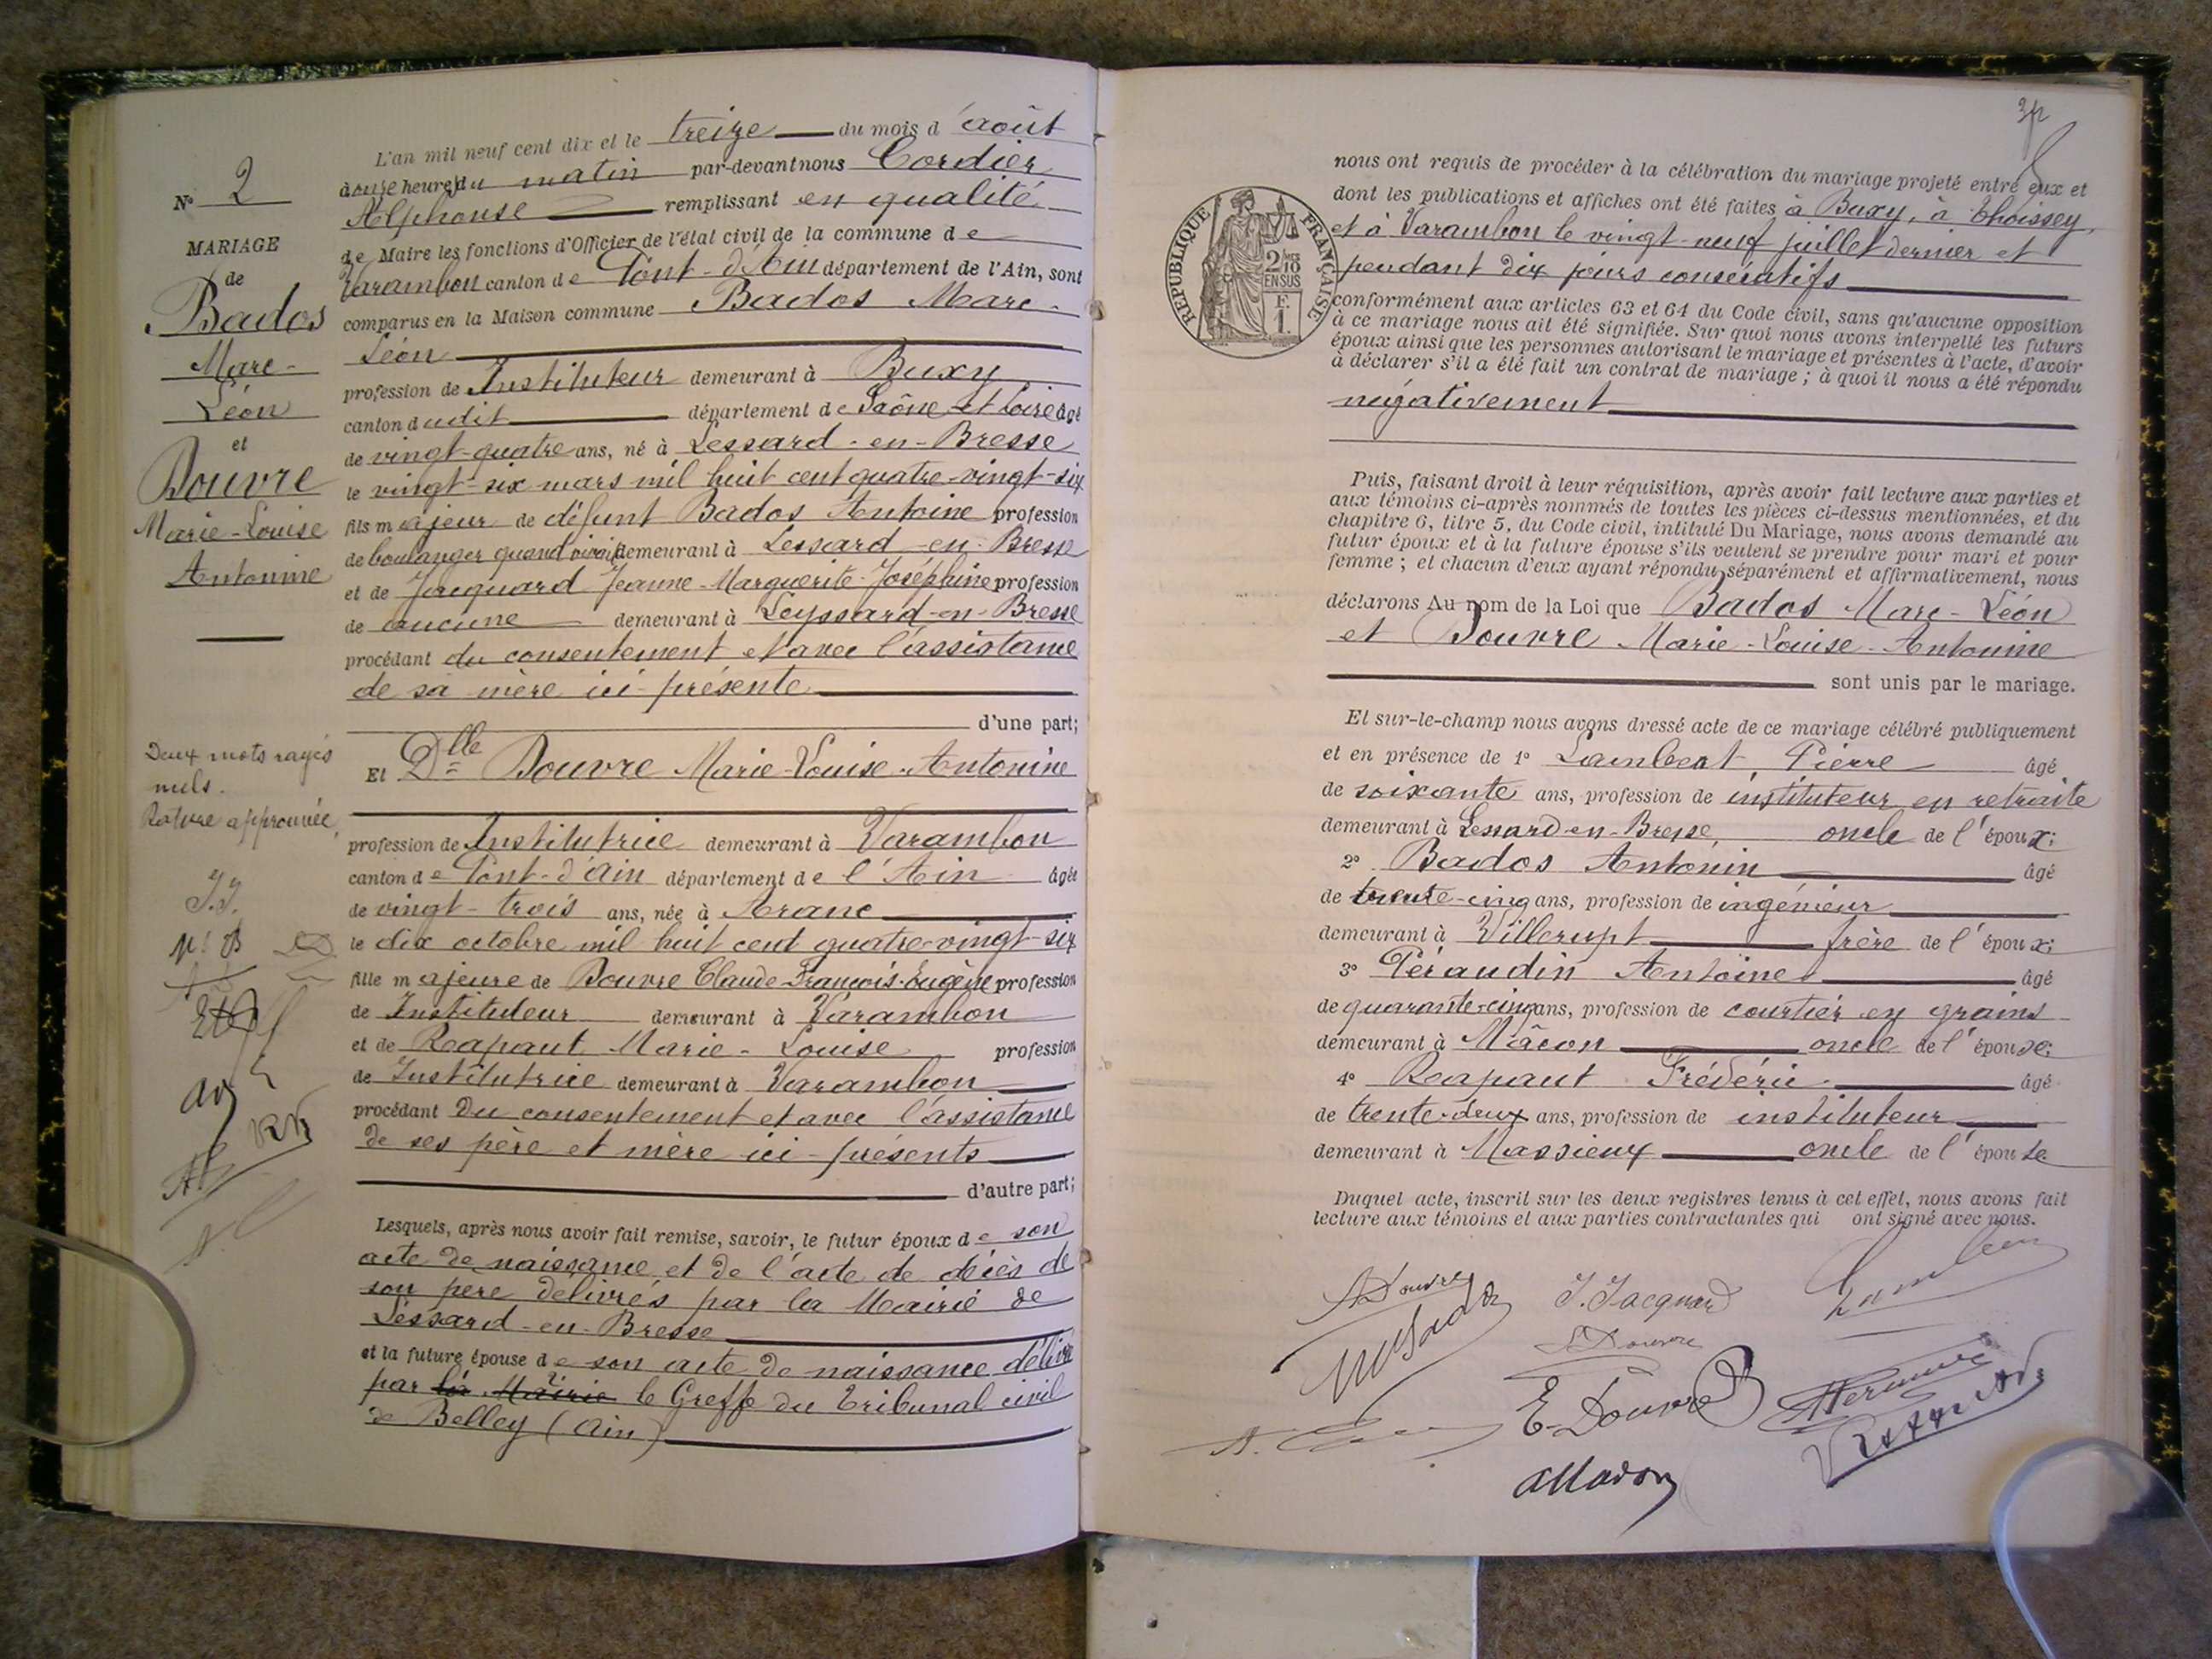 N° 2
MARIAGE
de
Bados
Marc-
Léon
et
Douvre
Marie-Louise
Antonine
Deux mots rayés
nuls.
Rature approuvée
J.J.
L'an mil neuf cent dix et le treize du mois d'août
à onze heures du matin par-devant nous Cordier
Alphonse remplissant en qualité
de Maire les fonctions d'Officier de l'état civil de la commune de
Varambon canton de Pont-d'Ain département de l'Ain, sont
comparus en la Maison commune Bados Marc-
Léon
profession de Instituteur demeurant à Buxy
canton dudit département de Saône-et-Loire âgé
de vingt-quatre ans, né à Lessard-en-Bresse
le vingt-six mars mil huit cent quatre-vingt-six
fils majeur de défunt Bados Antoine profession
de boulanger quand vivait demeurant à Lessard-en-Bresse
et de Jacquard Jeanne-Marguerite-Joséphine profession
de aucune demeurant à Leyssard-en-Bresse
procédant du consentement et avec l'assistance
de sa mère ici-présente
d'une part;
Et Dlle Douvre Marie-Louise-Antonine
profession de Institutrice demeurant à Varambon
canton de Pont-d'Ain département de l'Ain âgée
de vingt-trois ans, née à Aranc
le dix octobre mil huit cent quatre-vingt-six
fille majeure de Douvre Claude-François-Eugène profession
de Instituteur demeurant à Varambon
et de Reapaut Marie-Louise profession
de Institutrice demeurant à Varambon
procédant Du consentement et avec l'assistance
de ses père et mère ici-présents
d'autre part;
Lesquels, après nous avoir fait remise, savoir, le futur époux de son
acte de naissance et de l'acte de décès de
son père délivrés par la Mairie de
Lessard-en-Bresse
et la future épouse de son acte de naissance délivré
par la Mairie le Greffe du Tribunal civil
de Belley (Ain)
nous ont requis de procéder à la célébration du mariage projeté entre eux et
dont les publications et affiches ont été faites à Buxy, à Thoissey,
et à Varambon le vingt-neuf juillet dernier et
pendant dix jours consécutifs
RÉPUBLIQUE FRANÇAISE
2/10 EN SUS
F. 1.
conformément aux articles 63 et 64 du Code civil, sans qu'aucune opposition
à ce mariage nous ait été signifiée. Sur quoi nous avons interpellé les futurs
époux ainsi que les personnes autorisant le mariage et présentes à l'acte, d'avoir
à déclarer s'il a été fait un contrat de mariage; à quoi il nous a été répondu
négativement
Puis, faisant droit à leur réquisition, après avoir fait lecture aux parties et
aux témoins ci-après nommés de toutes les pièces ci-dessus mentionnées, et du
chapitre 6, titre 5, du Code civil, intitulé Du Mariage, nous avons demandé au
futur époux et à la future épouse s'ils veulent se prendre pour mari et pour
femme; et chacun d'eux ayant répondu séparément et affirmativement, nous
déclarons Au nom de la Loi que Bados Marc-Léon
et Douvre Marie-Louise-Antonine
sont unis par le mariage.
Et sur-le-champ nous avons dressé acte de ce mariage célébré publiquement
et en présence de 1° Lambert Pierre âgé
de soixante ans, profession de instituteur en retraite
demeurant à Lessard-en-Bresse oncle de l'époux;
2° Bados Antonin âgé
de trente-cinq ans, profession de ingénieur
demeurant à Villerupt frère de l'époux;
3° Péraudin Antoine âgé
de quarante-cinq ans, profession de courtier en grains
demeurant à Mâcon oncle de l'épouse;
4° Reapaut Frédéric âgé
de trente-deux ans, profession de instituteur
demeurant à Massieux oncle de l'épouse
Duquel acte, inscrit sur les deux registres tenus à cet effet, nous avons fait
lecture aux témoins et aux parties contractantes qui ont signé avec nous.
A Douvre
J. Jacquard
E. Douvre